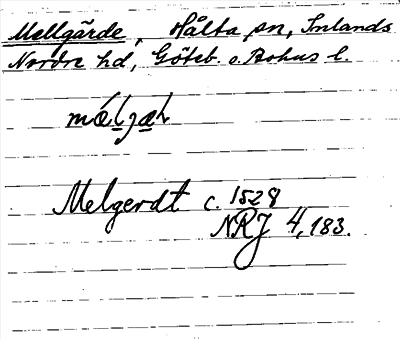 Mellgärde, Hålta sn, Inlands
Nordre hd, Göteb. o. Bohus l.
Melgerdt c. 1528
NRJ 4, 183.